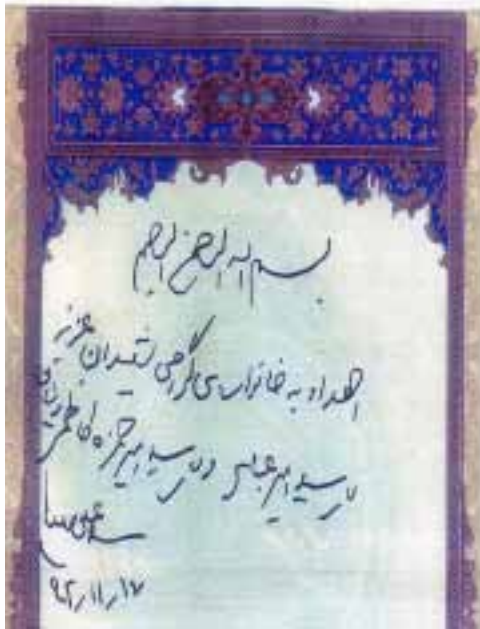 بسم الله الرحمن الرحیم
اهداء به خانواده‌ی گرامی شهیدان عزیز
سید امیر عباس و سید امیر حمزه
سید علی
۹۲,۱۱,۱۷